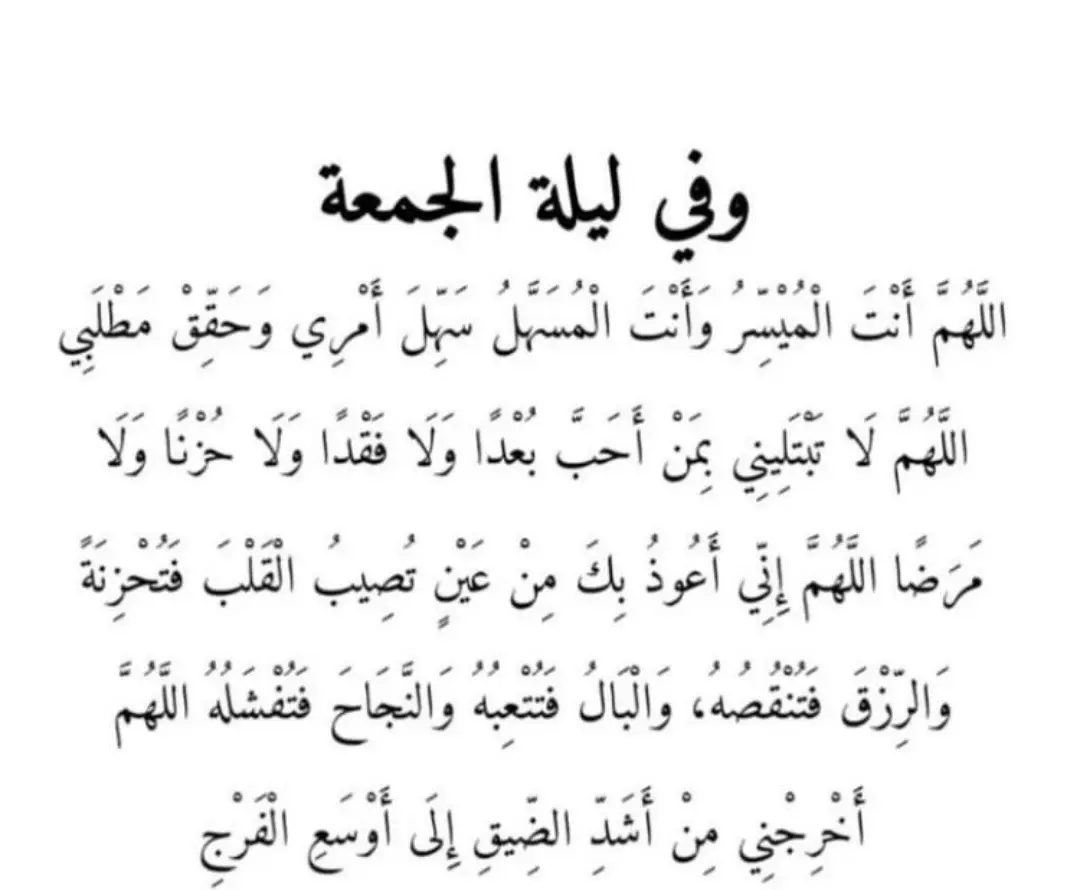 وفي ليلة الجمعة
اللَّهُمَّ أَنْتَ الْمُيْسِّرُ وَأَنْتَ الْمُسَهَّلُ سَهِّلَ أَمْرِي وَحَقِّقْ مَطْلَبِي
اللَّهُمَّ لَا تَبْتَلِينِي بِمَنْ أَحَبَّ بُعْدًا وَلَا فَقْدًا وَلَا حُزْنًا وَلَا
مَرَضًا اللَّهُمَّ إِنِّي أَعُوذُ بِكَ مِنْ عَيْنٍ تُصِيبُ الْقَلْبَ فَتُحْزِنَةً
وَالرِّزْقَ فَتُنْقُصُهُ، وَالْبَالُ فَتُتْعِبُهُ وَالنَّجَاحَ فَتُفْشَلُهُ اللَّهُمَّ
أَخْرِجْنِي مِنْ أَشَدِّ الضِّيقِ إِلَى أَوْسَعِ الْفَرْجِ